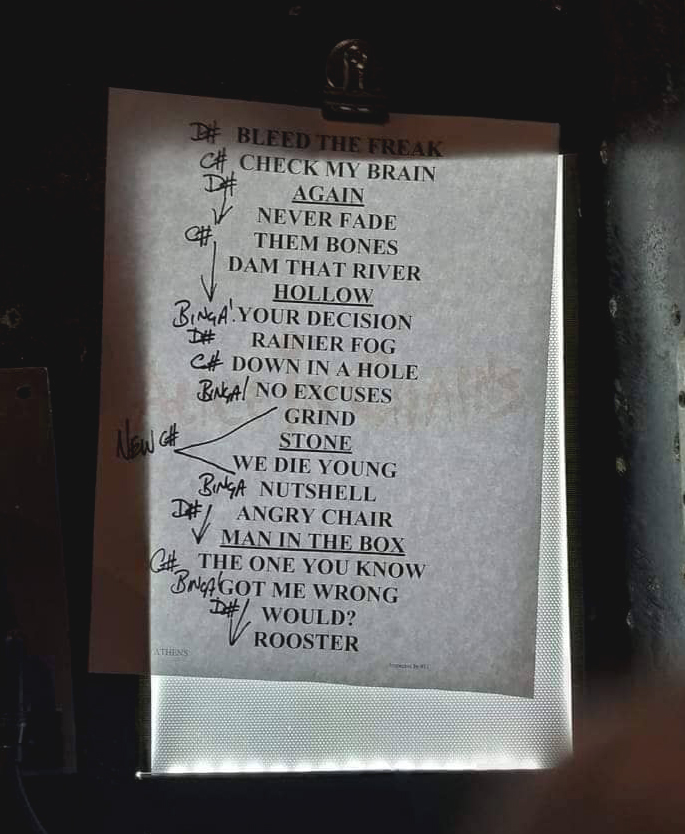 D# BLEED THE FREAK
C# CHECK MY BRAIN
D# AGAIN
NEVER FADE
C# THEM BONES
DAM THAT RIVER
HOLLOW
BINGA! YOUR DECISION
D# RAINIER FOG
C# DOWN IN A HOLE
BINGA/ NO EXCUSES
GRIND
NEW C# STONE
WE DIE YOUNG
BINGA NUTSHELL
D# ANGRY CHAIR
MAN IN THE BOX
C# THE ONE YOU KNOW
BINGA! GOT ME WRONG
D# WOULD?
ROOSTER
ATHENS